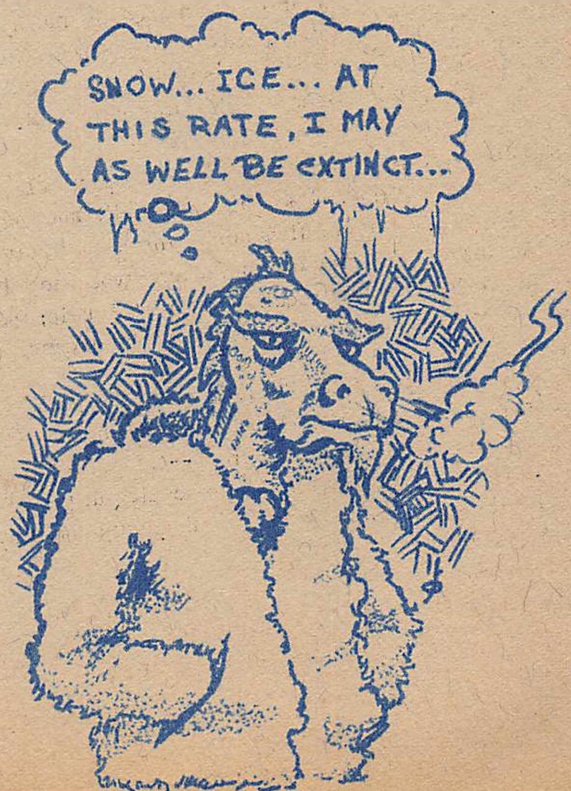 SNOW... ICE... AT
THIS RATE, I MAY
AS WELL BE EXTINCT...